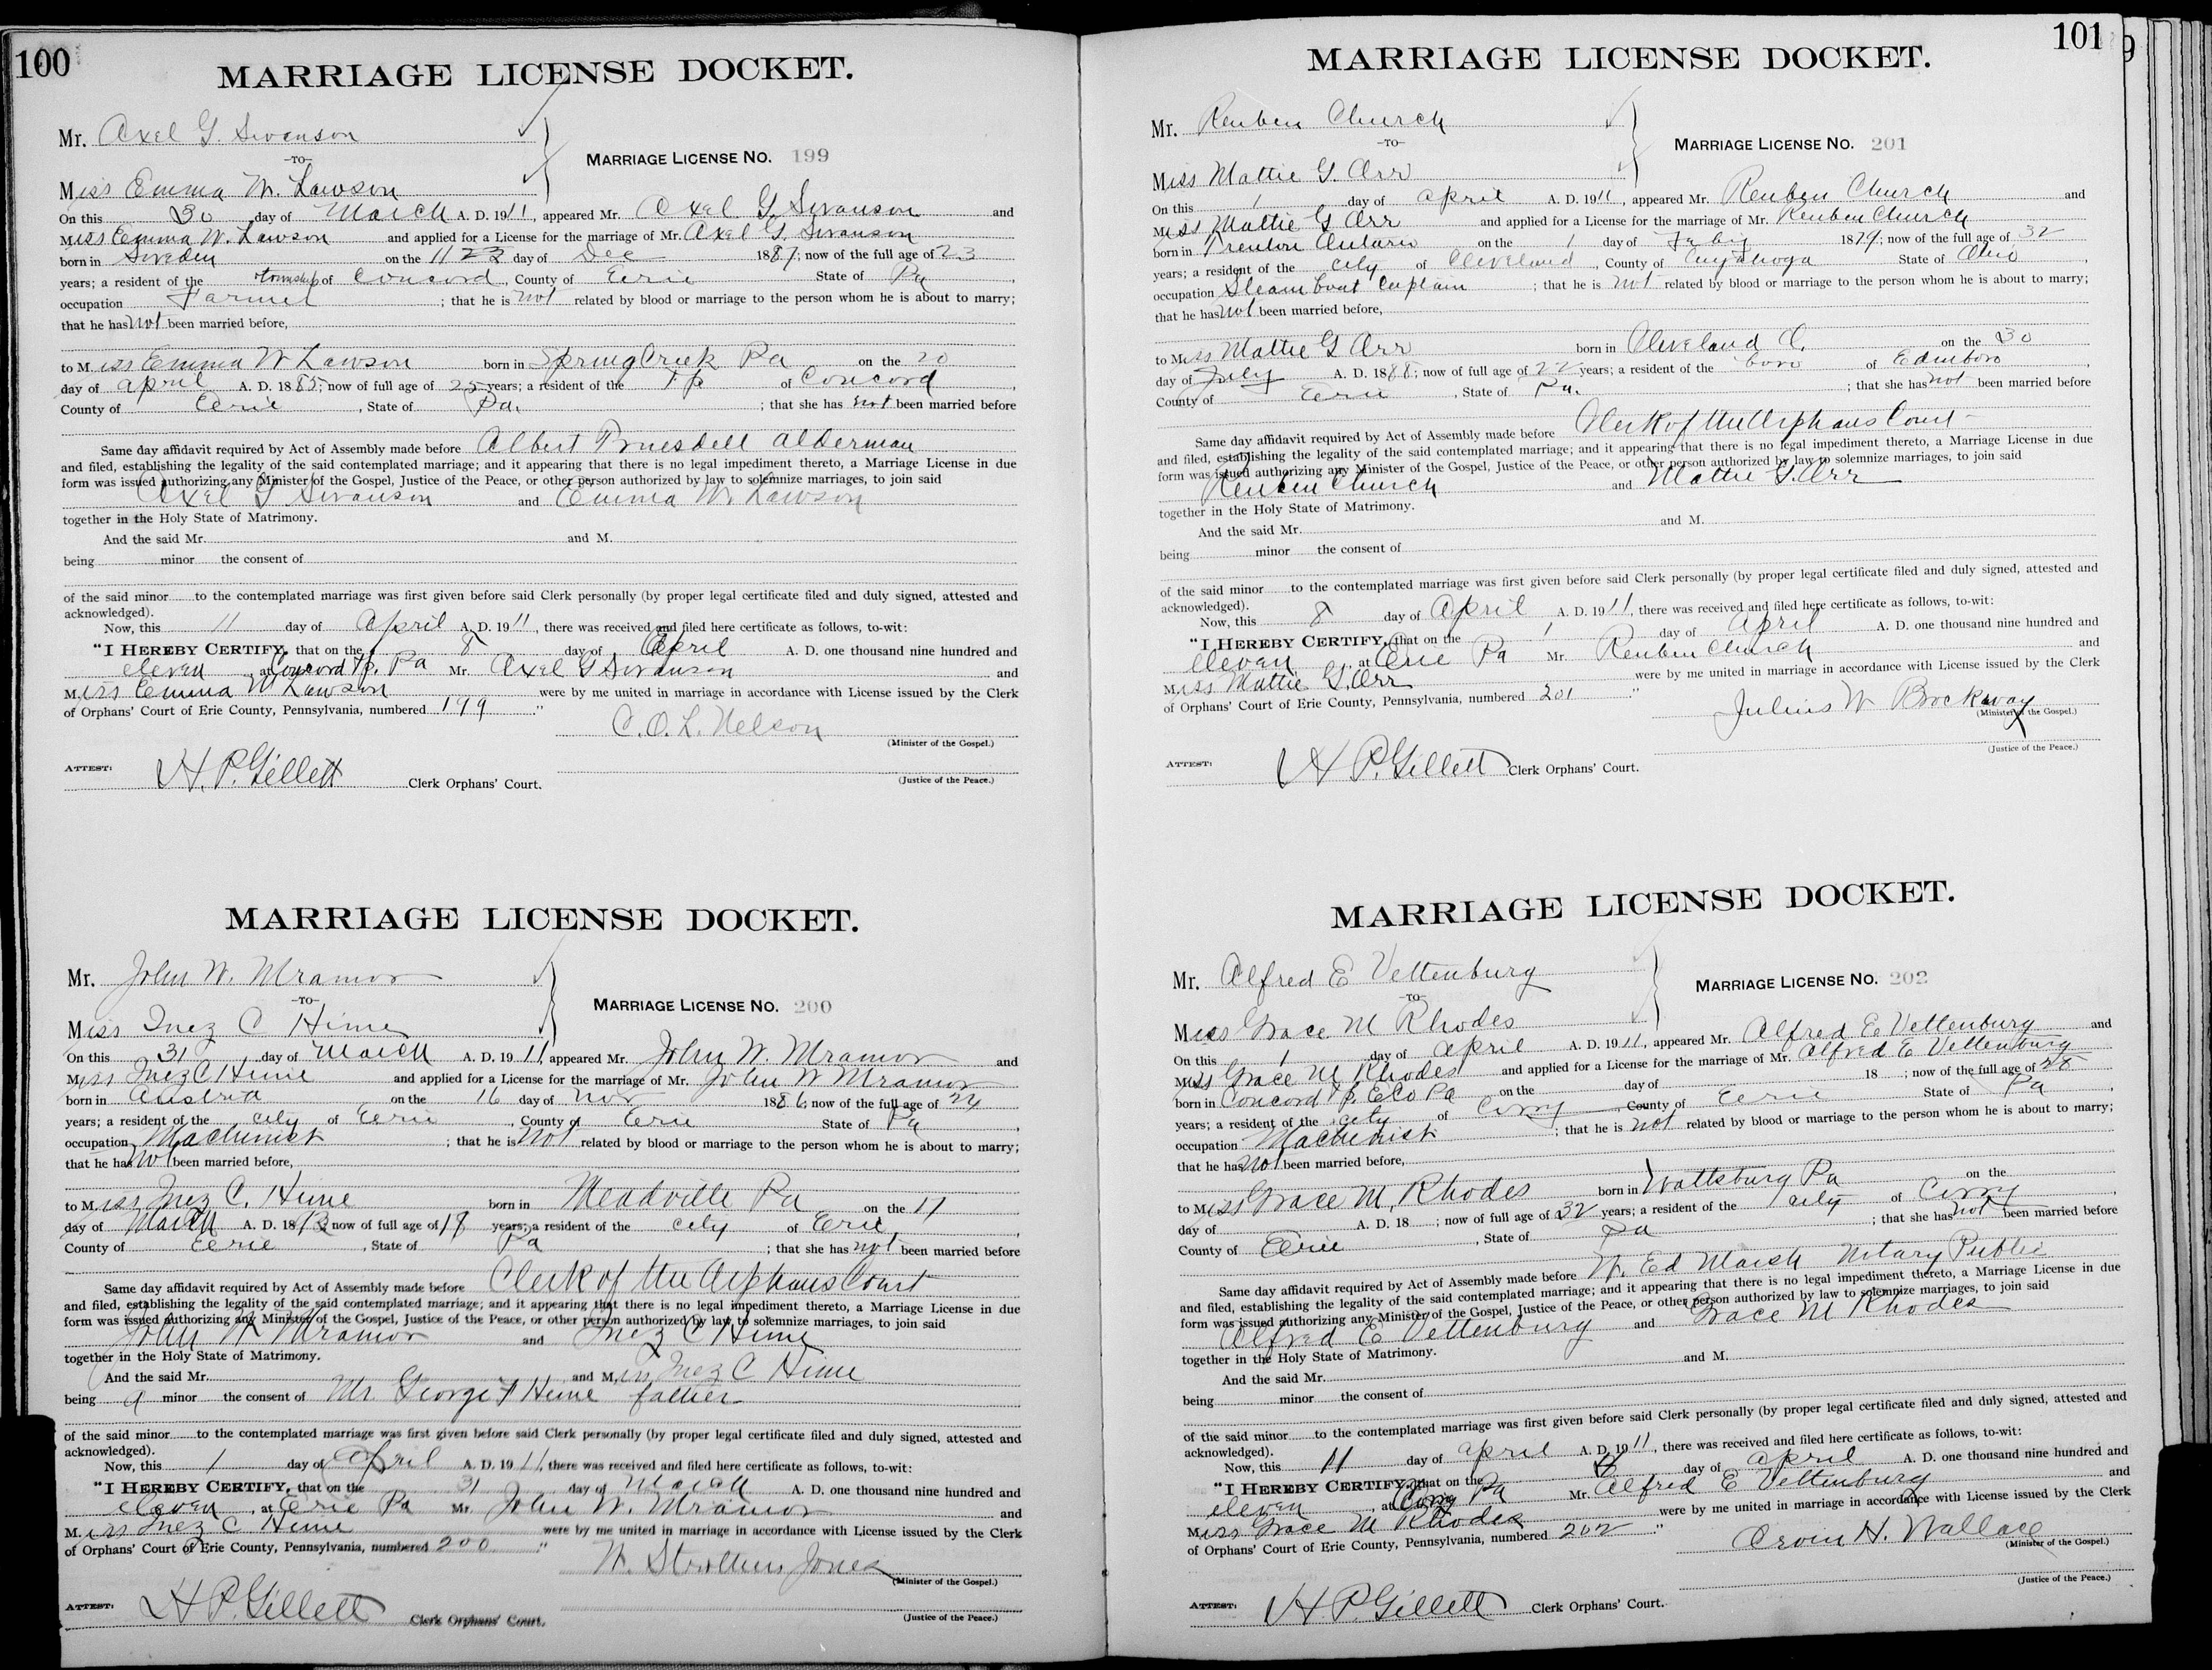 100
MARRIAGE LICENSE DOCKET.
Mr. Axel G. Swanson
—TO—
MARRIAGE LICENSE NO. 199
Miss Emma W. Lawson
On this 30 day of March A. D. 1911, appeared Mr. Axel G. Swanson and
Miss Emma W. Lawson and applied for a License for the marriage of Mr. Axel G. Swanson
born in Sweden on the 23 day of Dec 1887; now of the full age of 23
years; a resident of the township of Concord, County of Erie State of Pa,
occupation Farmer; that he is not related by blood or marriage to the person whom he is about to marry;
that he has not been married before,
to Miss Emma W Lawson born in Spring Creek Pa on the 20
day of April A. D. 1885; now of full age of 25 years; a resident of the Tp of Concord,
County of Erie, State of Pa.; that she has not been married before
Same day affidavit required by Act of Assembly made before Albert Truesdell Alderman
and filed, establishing the legality of the said contemplated marriage; and it appearing that there is no legal impediment thereto, a Marriage License in due
form was issued authorizing any Minister of the Gospel, Justice of the Peace, or other person authorized by law to solemnize marriages, to join said
Axel G Swanson and Emma W. Lawson
together in the Holy State of Matrimony.
And the said Mr. and M.
being minor the consent of
of the said minor to the contemplated marriage was first given before said Clerk personally (by proper legal certificate filed and duly signed, attested and
acknowledged).
Now, this 11 day of April A. D. 1911, there was received and filed here certificate as follows, to-wit:
"I HEREBY CERTIFY, that on the 8 day of April A. D. one thousand nine hundred and
eleven, at Concord Tp. Pa Mr. Axel G Swanson and
Miss Emma W Lawson were by me united in marriage in accordance with License issued by the Clerk
of Orphans' Court of Erie County, Pennsylvania, numbered 199"
C. O. L. Nelson
(Minister of the Gospel.)
ATTEST: H. P. Gillett Clerk Orphans' Court.
(Justice of the Peace.)
MARRIAGE LICENSE DOCKET.
Mr. John W. Mramor
—TO—
MARRIAGE LICENSE NO. 200
Miss Inez C Hime
On this 31 day of March A. D. 1911, appeared Mr. John W. Mramor and
Miss Inez C Hime and applied for a License for the marriage of Mr. John W Mramor
born in Austria on the 16 day of Nov 1886; now of the full age of 24
years; a resident of the city of Erie, County of Erie State of Pa,
occupation Machinist; that he is not related by blood or marriage to the person whom he is about to marry;
that he has not been married before,
to Miss Inez C. Hime born in Meadville Pa on the 17
day of March A. D. 18; now of full age of 18 years; a resident of the city of Erie,
County of Erie, State of Pa; that she has not been married before
Same day affidavit required by Act of Assembly made before Clerk of the Orphans Court
and filed, establishing the legality of the said contemplated marriage; and it appearing that there is no legal impediment thereto, a Marriage License in due
form was issued authorizing any Minister of the Gospel, Justice of the Peace, or other person authorized by law to solemnize marriages, to join said
John W Mramor and Inez C Hime
together in the Holy State of Matrimony.
And the said Mr. and Miss Inez C Hime
being a minor the consent of Mr. George Hime father
of the said minor to the contemplated marriage was first given before said Clerk personally (by proper legal certificate filed and duly signed, attested and
acknowledged).
Now, this 1 day of April A. D. 1911, there was received and filed here certificate as follows, to-wit:
"I HEREBY CERTIFY, that on the 31 day of March A. D. one thousand nine hundred and
eleven, at Erie Pa Mr. John W. Mramor and
Miss Inez C Hime were by me united in marriage in accordance with License issued by the Clerk
of Orphans' Court of Erie County, Pennsylvania, numbered 200"
W. Strothers Jones
(Minister of the Gospel.)
ATTEST: H P. Gillett Clerk Orphans' Court.
(Justice of the Peace.)
101
MARRIAGE LICENSE DOCKET.
Mr. Reuben Church
—TO—
MARRIAGE LICENSE NO. 201
Miss Mattie G. Orr
On this 1 day of April A. D. 1911, appeared Mr. Reuben Church and
Miss Mattie G Orr and applied for a License for the marriage of Mr. Reuben Church
born in Trenton Ontario on the 1 day of Feby 1879; now of the full age of 32
years; a resident of the city of Cleveland, County of Cuyahoga State of Ohio,
occupation Steam boat Captain; that he is not related by blood or marriage to the person whom he is about to marry;
that he has not been married before,
to Miss Mattie G Orr born in Cleveland O. on the 30
day of July A. D. 1888; now of full age of 22 years; a resident of the boro of Edinboro,
County of Erie, State of Pa.; that she has not been married before
Same day affidavit required by Act of Assembly made before Clerk of the Orphans Court
and filed, establishing the legality of the said contemplated marriage; and it appearing that there is no legal impediment thereto, a Marriage License in due
form was issued authorizing any Minister of the Gospel, Justice of the Peace, or other person authorized by law to solemnize marriages, to join said
Reuben Church and Mattie G. Orr
together in the Holy State of Matrimony.
And the said Mr. and M.
being minor the consent of
of the said minor to the contemplated marriage was first given before said Clerk personally (by proper legal certificate filed and duly signed, attested and
acknowledged).
Now, this 8 day of April A. D. 1911, there was received and filed here certificate as follows, to-wit:
"I HEREBY CERTIFY, that on the 1 day of April A. D. one thousand nine hundred and
eleven, at Erie Pa Mr. Reuben Church and
Miss Mattie G. Orr were by me united in marriage in accordance with License issued by the Clerk
of Orphans' Court of Erie County, Pennsylvania, numbered 201"
Julius W Brockway
(Minister of the Gospel.)
(Justice of the Peace.)
ATTEST: H P. Gillett Clerk Orphans' Court.
MARRIAGE LICENSE DOCKET.
Mr. Alfred E Vettenburg
—TO—
MARRIAGE LICENSE NO. 202
Miss Grace M Rhodes
On this 1 day of April A. D. 1911, appeared Mr. Alfred E Vettenburg and
Miss Grace M Rhodes and applied for a License for the marriage of Mr. Alfred E Vettenburg
born in Concord Tp. E Co Pa on the day of 18; now of the full age of 28
years; a resident of the city of Corry, County of Erie State of Pa,
occupation Machinist; that he is not related by blood or marriage to the person whom he is about to marry;
that he has not been married before,
to Miss Grace M. Rhodes born in Wattsburg Pa on the
day of A. D. 18; now of full age of 32 years; a resident of the city of Corry,
County of Erie, State of Pa; that she has not been married before
Same day affidavit required by Act of Assembly made before W. Ed Marsh Notary Public
and filed, establishing the legality of the said contemplated marriage; and it appearing that there is no legal impediment thereto, a Marriage License in due
form was issued authorizing any Minister of the Gospel, Justice of the Peace, or other person authorized by law to solemnize marriages, to join said
Alfred E Vettenburg and Grace M Rhodes
together in the Holy State of Matrimony.
And the said Mr. and M.
being minor the consent of
of the said minor to the contemplated marriage was first given before said Clerk personally (by proper legal certificate filed and duly signed, attested and
acknowledged).
Now, this 11 day of April A. D. 1911, there was received and filed here certificate as follows, to-wit:
"I HEREBY CERTIFY, that on the day of April A. D. one thousand nine hundred and
eleven, at Corry Pa Mr. Alfred E Vettenburg and
Miss Grace M Rhodes were by me united in marriage in accordance with License issued by the Clerk
of Orphans' Court of Erie County, Pennsylvania, numbered 202"
Orvin H. Wallace
(Minister of the Gospel.)
(Justice of the Peace.)
ATTEST: H. P. Gillett Clerk Orphans' Court.